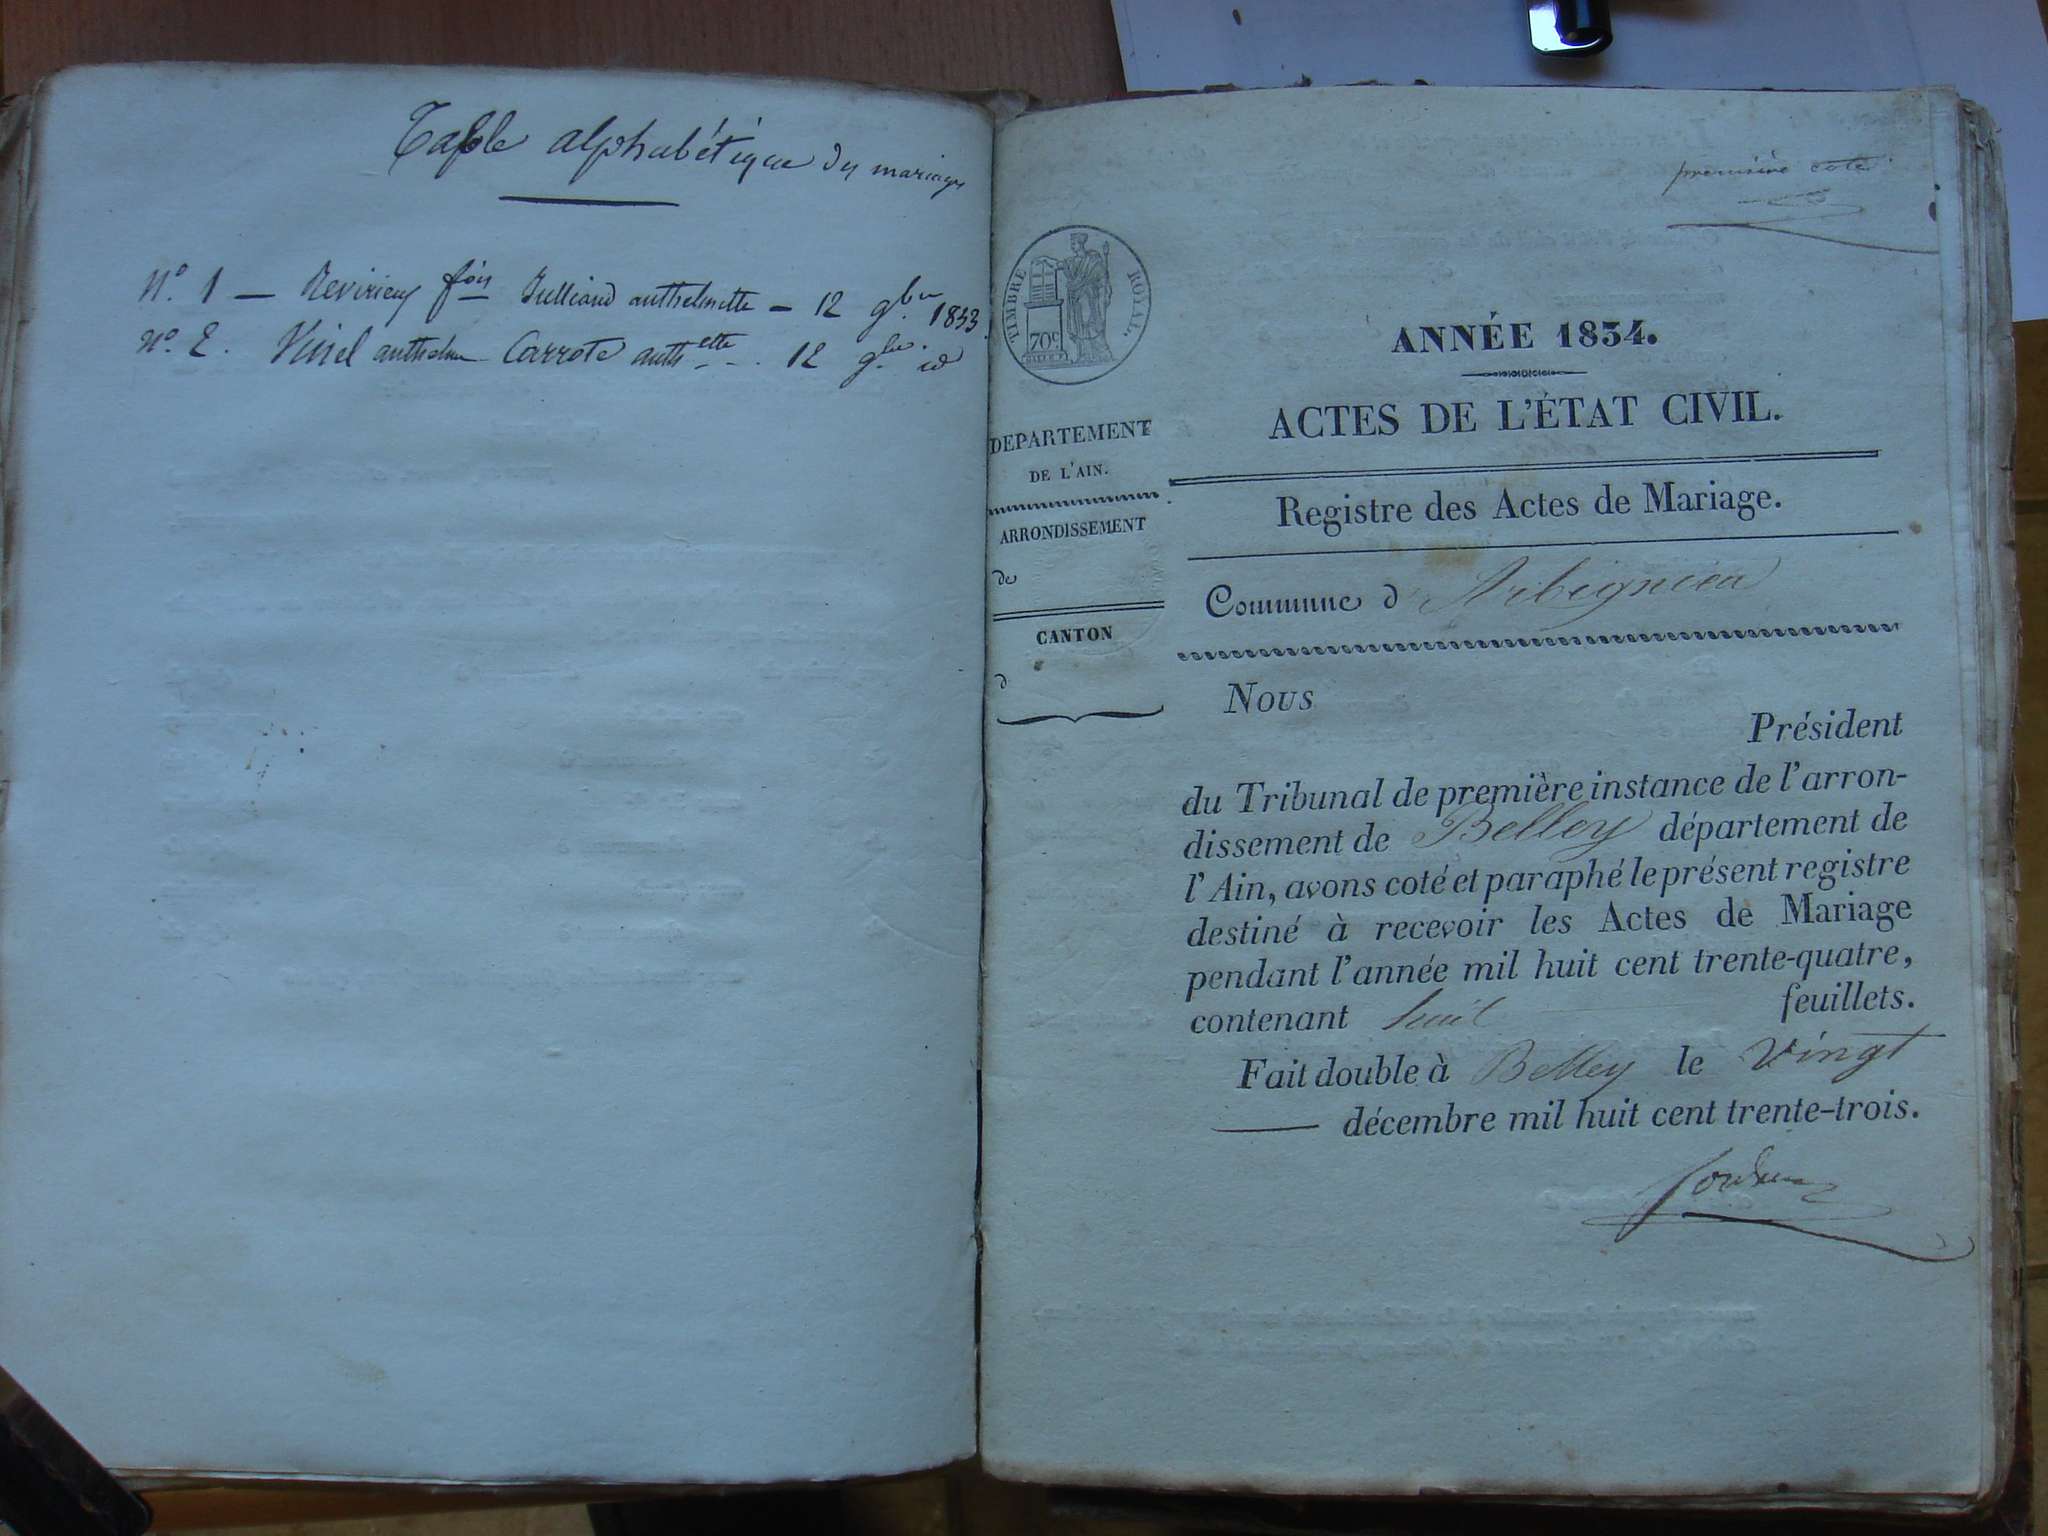 Table alphabétique des mariages
N.° 1 — Revirieux fçois Julliand anthelmette — 12 9bre 1833
N.° 2. anthelme Carrote anth ette - . 12 9bre. id
première cote
TIMBRE ROYAL.
70c
ANNÉE 1834.
ACTES DE L'ÉTAT CIVIL.
Registre des Actes de Mariage.
Commune d'Arbignieu
DEPARTEMENT
DE L'AIN.
ARRONDISSEMENT
de
CANTON
d
Nous
Président
du Tribunal de première instance de l'arron-
dissement de Belley département de
l'Ain, avons coté et paraphé le présent registre
destiné à recevoir les Actes de Mariage
pendant l'année mil huit cent trente-quatre,
contenant huit feuillets.
Fait double à Belley le Vingt
— décembre mil huit cent trente-trois.